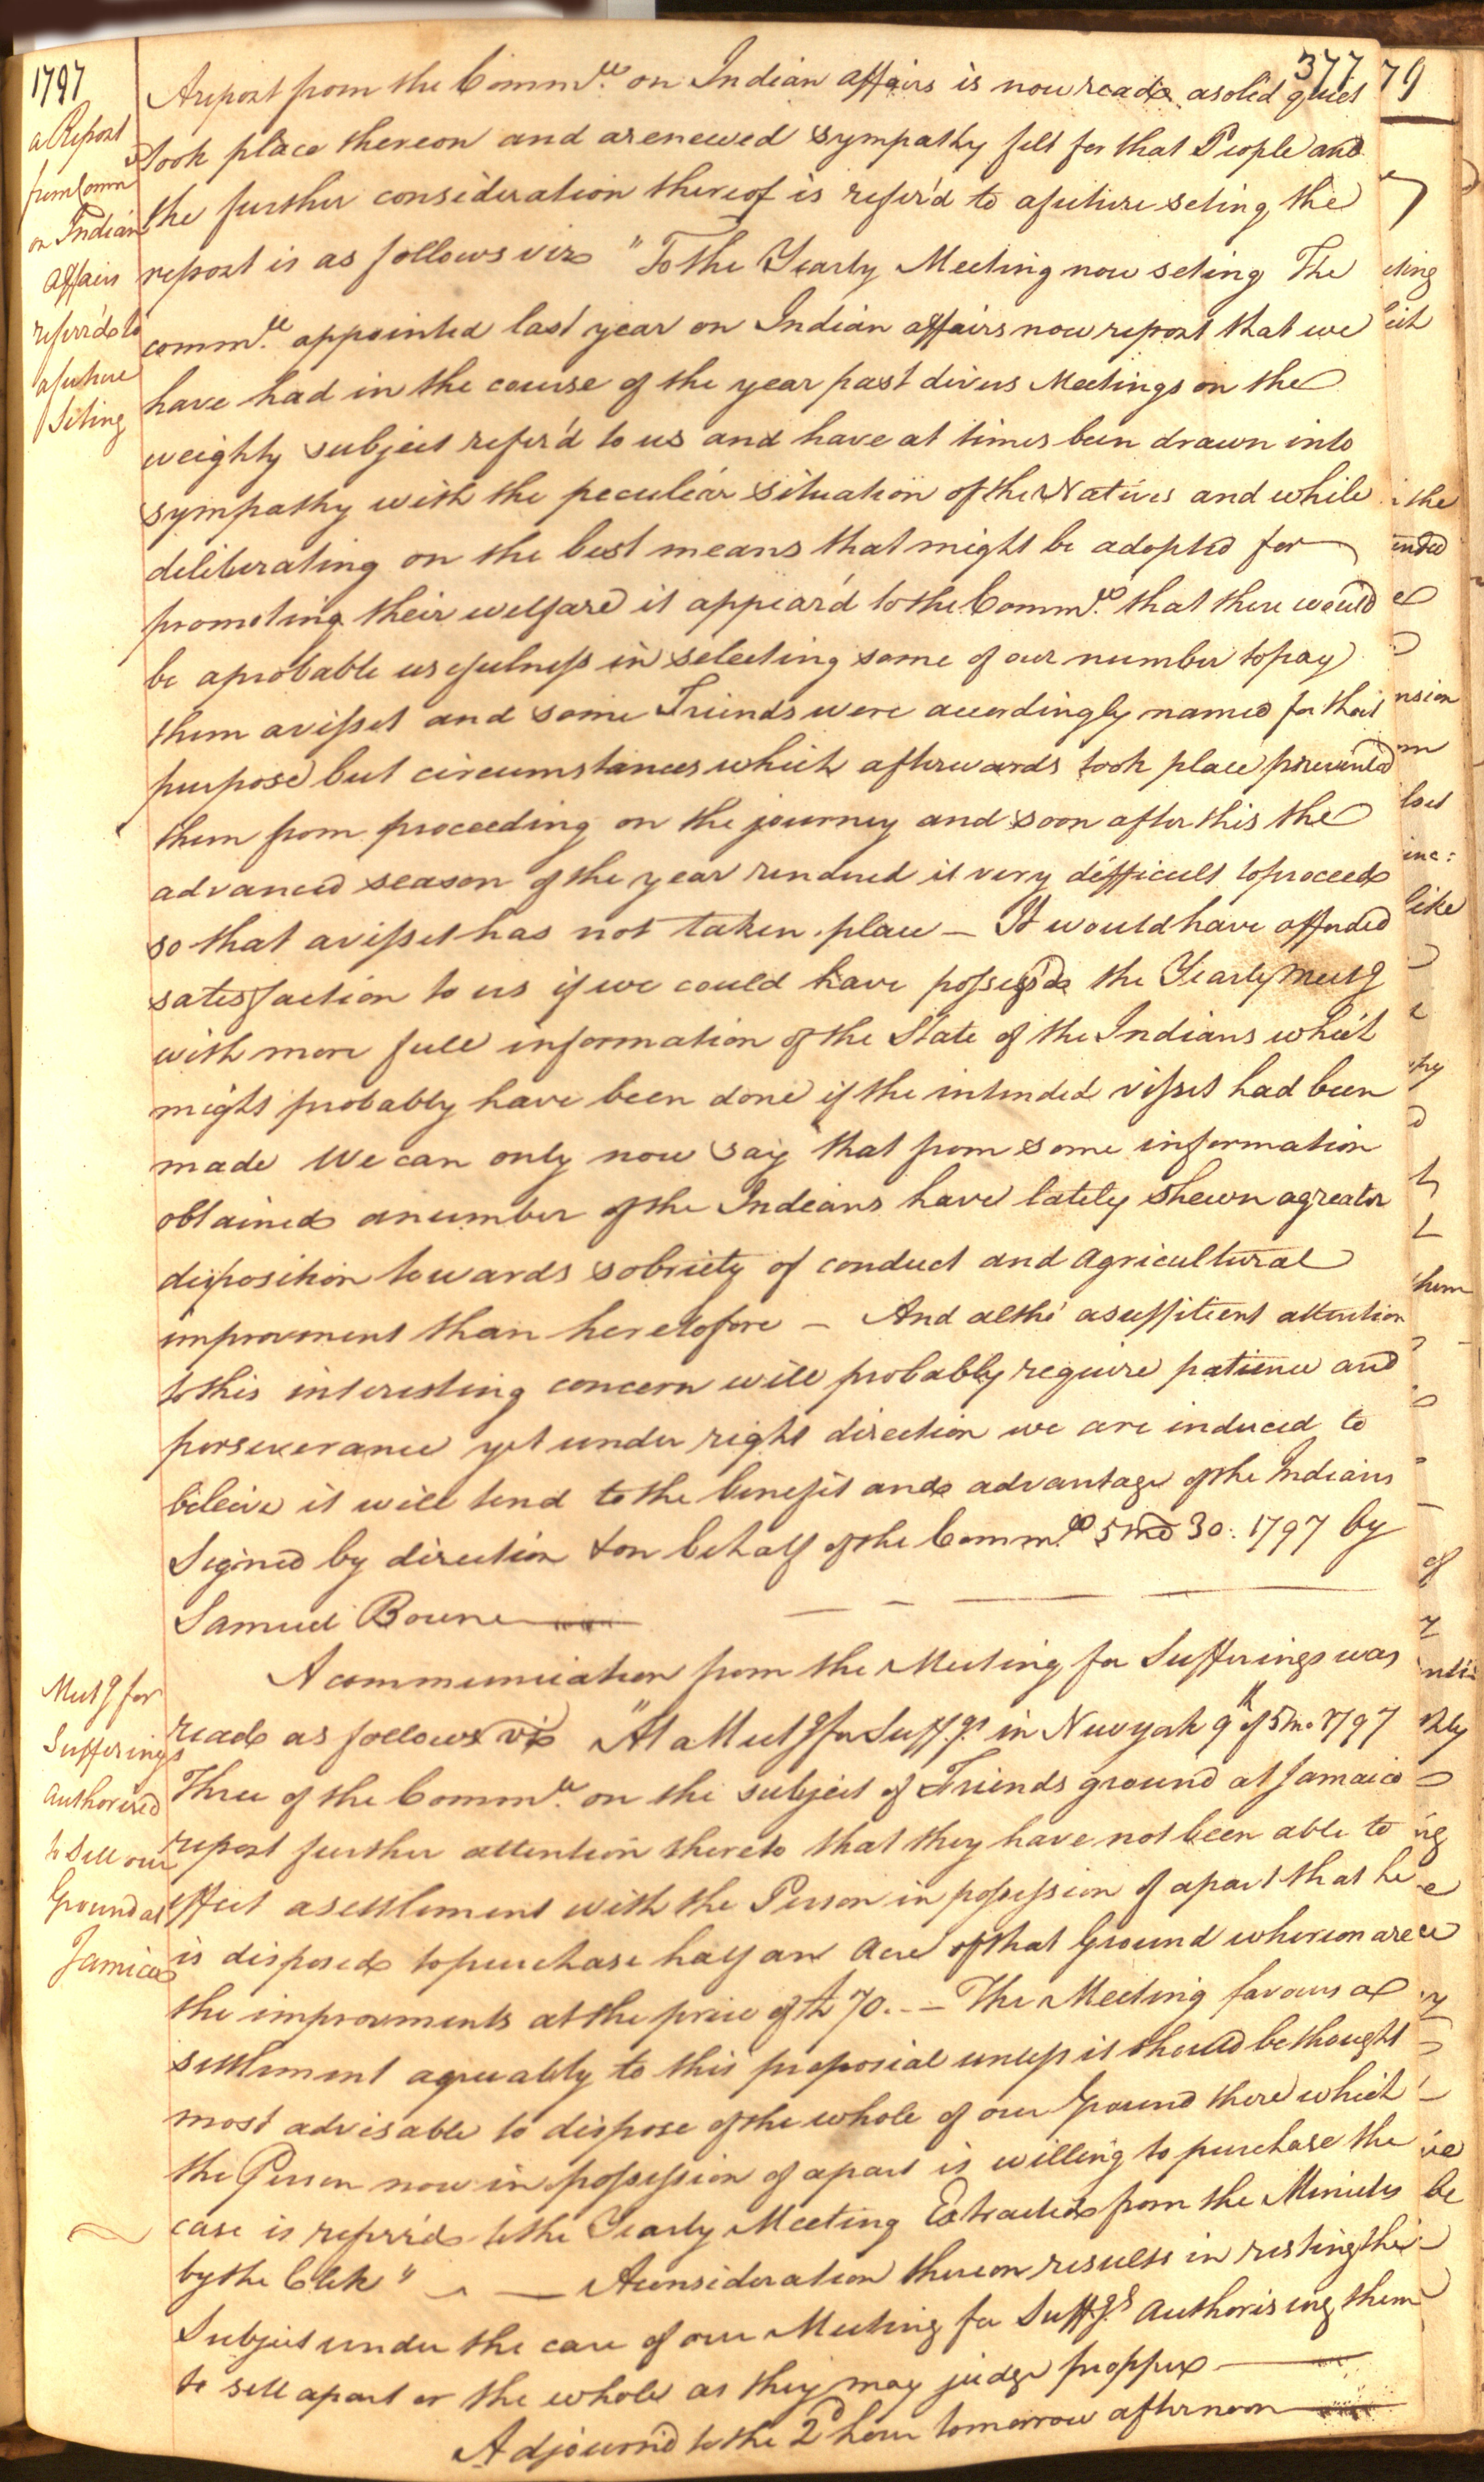 1797
377
79
a Report
from Comm
on Indian
affairs
referrd to
a future
Siting
A report from the Comm.ee on Indian affairs is now read a solid quiet
took place thereon and a renewed sympathy felt for that People and
the further consideration thereof is refer'd to a future seting, the
report is as follows viz "To the Yearly Meeting now seting The
comm.ee appointed last year on Indian affairs now report that we
have had in the course of the year past divers Meetings on the
weighty subject refer'd to us and have at times been drawn into
sympathy with the peculiar situation of the Natives and while
deliberating on the best means that might be adopted for
promoting their welfare it appear'd to the Comm.ee that there would
be a probable usefulness in selecting some of our number to pay
them a visset and some Friends were accordingly named for that
purpose but circumstances which afterwards took place prevented
them from proceeding on the journey and soon after this the
advanced season of the year rendered it very difficult to proceed
so that a visset has not taken place — It would have afforded
satisfaction to us if we could have possess'd the Yearly Meetg
with more full information of the State of the Indians which
might probably have been done if the intended visset had been
made We can only now say that from some information
obtained a number of the Indians have lately shewn a greator
disposition towards sobriety of conduct and agricultural
improvment than heretofore — And altho' a suffitient attention
to this interesting concern will probably require patience and
perseverance yet under right direction we are induced to
beleive it will tend to the benefit and advantage of the Indians
Signed by direction & on behalf of the Comm.ee 5 mo 30. 1797 by
Samuel Bowne
Meetg for
Sufferings
authorised
to Sell our
Ground at
Jamica
A communication from the Meeting for Sufferings was
read as follows viz "At a Meetg for Suffgs. in Newyork 9th of 5 mo. 1797
Three of the Comm.ee on the subject of Friends ground at Jamaica
report further attention thereto that they have not been able to
effect a settlement with the Person in possession of a part that he
is disposed to purchase half an acre of that Ground whereon are
the improvments at the price of £70.— The Meeting favours a
settlement agreeably to this proposial unless it should be thought
most advisable to dispose of the whole of our Ground there which
the Person now in possession of a part is willing to purchase the
case is referr'd to the Yearly Meeting Extracted from the Minutes
by the Clerk" — A consideration thereon results in resting the
Subject under the care of our Meeting for Suffgs authorising them
to sell a part or the whole as they may judge propper
Adjourn'd to the 2d hour tomorrow afternoon